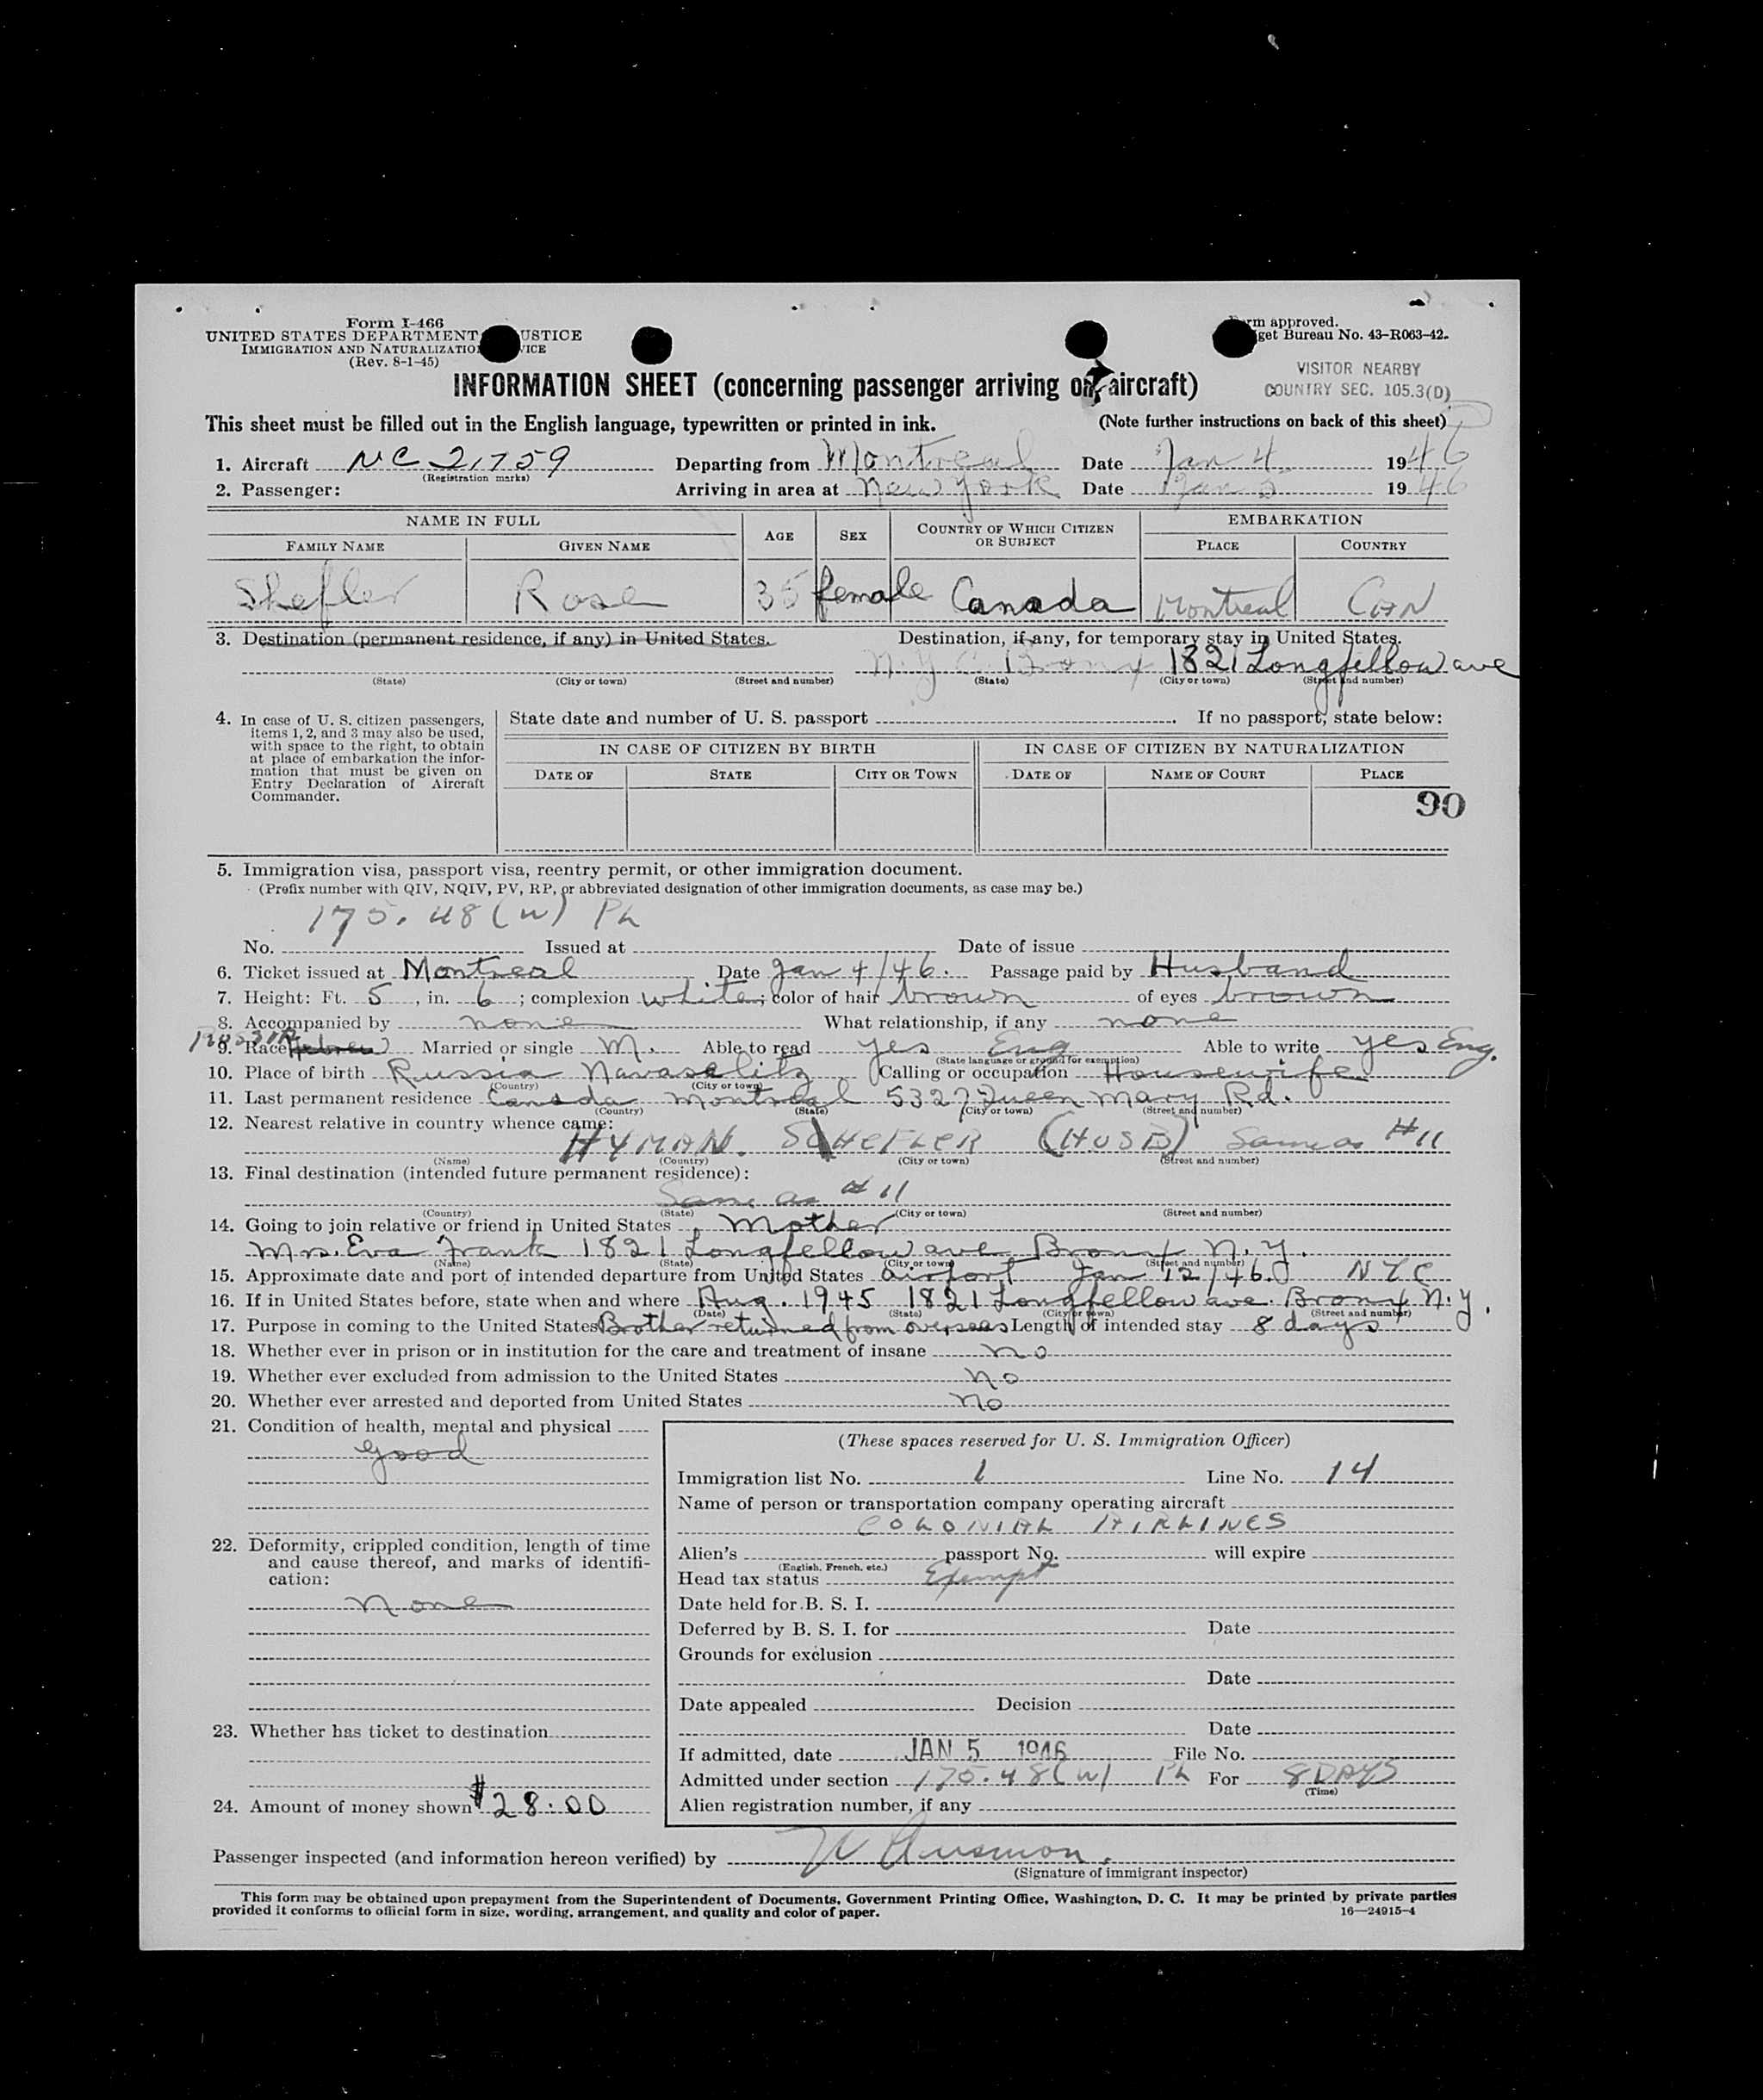 Form I-466
UNITED STATES DEPARTMENT USTICE
IMMIGRATION AND NATURALIZATIO VICE
(Rev. 8-1-45)
rm approved.
get Bureau No. 43-R063-42.
VISITOR NEARBY
COUNTRY SEC. 105.3(D)
INFORMATION SHEET (concerning passenger arriving on aircraft)
This sheet must be filled out in the English language, typewritten or printed in ink. (Note further instructions on back of this sheet)
1. Aircraft NC 21759 Departing from Montreal Date Jan 4 1946
(Registration marks)
2. Passenger: Arriving in area at New York Date Jan 5 1946
NAME IN FULL AGE SEX COUNTRY OF WHICH CITIZEN OR SUBJECT EMBARKATION
FAMILY NAME GIVEN NAME PLACE COUNTRY
Shefler Rose 35 female Canada Montreal CAN
3. Destination (permanent residence, if any) in United States. Destination, if any, for temporary stay in United States.
N.Y.C. Bronx 1821 Longfellow ave
(State) (City or town) (Street and number) (State) (City or town) (Street and number)
4. In case of U. S. citizen passengers, items 1, 2, and 3 may also be used, with space to the right, to obtain at place of embarkation the information that must be given on Entry Declaration of Aircraft Commander.
State date and number of U. S. passport . If no passport, state below:
IN CASE OF CITIZEN BY BIRTH IN CASE OF CITIZEN BY NATURALIZATION
DATE OF STATE CITY OR TOWN DATE OF NAME OF COURT PLACE
90
5. Immigration visa, passport visa, reentry permit, or other immigration document.
(Prefix number with QIV, NQIV, PV, RP, or abbreviated designation of other immigration documents, as case may be.)
175.48(w) Ph
No. Issued at Date of issue
6. Ticket issued at Montreal Date Jan 4/46. Passage paid by Husband
7. Height: Ft. 5, in. 6; complexion white; color of hair brown of eyes brown
8. Accompanied by none What relationship, if any none
9. Race Hebrew Married or single M. Able to read yes Eng Able to write yes Eng.
(State language or ground for exemption)
10. Place of birth Russia Navaselitz Calling or occupation Housewife
(Country) (City or town)
11. Last permanent residence Canada Montreal 5327 Queen Mary Rd.
(Country) (State) (City or town) (Street and number)
12. Nearest relative in country whence came:
HYMAN. SCHEFLER (HUSB) Same as #11
(Name) (Country) (City or town) (Street and number)
13. Final destination (intended future permanent residence):
Same as #11
(Country) (State) (City or town) (Street and number)
14. Going to join relative or friend in United States Mother
Mrs. Eva Frank 1821 Longfellow ave Bronx N.Y.
(Name) (State) (City or town) (Street and number)
15. Approximate date and port of intended departure from United States airport Jan 12/46. NYC
16. If in United States before, state when and where Aug. 1945 1821 Longfellow ave. Bronx N.Y.
(Date) (State) (City or town) (Street and number)
17. Purpose in coming to the United States Brother returned from overseas Length of intended stay 8 days
18. Whether ever in prison or in institution for the care and treatment of insane no
19. Whether ever excluded from admission to the United States no
20. Whether ever arrested and deported from United States no
21. Condition of health, mental and physical
good
22. Deformity, crippled condition, length of time and cause thereof, and marks of identification:
none
23. Whether has ticket to destination
24. Amount of money shown $28.00
(These spaces reserved for U. S. Immigration Officer)
Immigration list No. 1 Line No. 14
Name of person or transportation company operating aircraft
COLONIAL AIRLINES
Alien's passport No. will expire
(English, French, etc.)
Head tax status Exempt
Date held for B. S. I.
Deferred by B. S. I. for Date
Grounds for exclusion
Date
Date appealed Decision
Date
If admitted, date JAN 5 1946 File No.
Admitted under section 175.48(w) Ph For 8 DAYS
(Time)
Alien registration number, if any
Passenger inspected (and information hereon verified) by
(Signature of immigrant inspector)
This form may be obtained upon prepayment from the Superintendent of Documents, Government Printing Office, Washington, D. C. It may be printed by private parties
provided it conforms to official form in size, wording, arrangement, and quality and color of paper. 16—24915-4